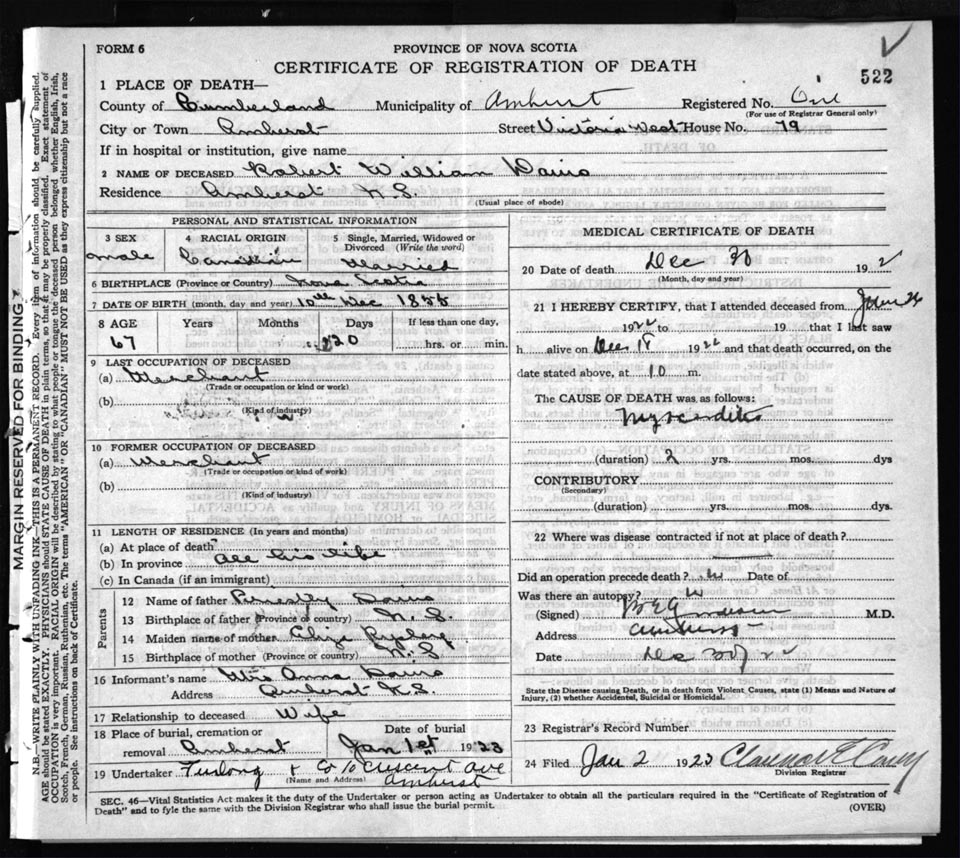 FORM 6
PROVINCE OF NOVA SCOTIA
CERTIFICATE OF REGISTRATION OF DEATH
522
1 PLACE OF DEATH—
County of Cumberland Municipality of Amherst Registered No.
(For use of Registrar General only)
City or Town Amherst Street Victoria West House No. 79
If in hospital or institution, give name
2 NAME OF DECEASED Robert William Davis
Residence Amherst N.S.
(Usual place of abode)
PERSONAL AND STATISTICAL INFORMATION
3 SEX male
4 RACIAL ORIGIN Canadian
5 Single, Married, Widowed or Divorced (Write the word) Married
6 BIRTHPLACE (Province or Country) Nova Scotia
7 DATE OF BIRTH (month, day and year) 10th Dec 1855
8 AGE Years Months Days If less than one day,
67 20 hrs. or min.
9 LAST OCCUPATION OF DECEASED
(a) Merchant
(Trade or occupation or kind or work)
(b)
(Kind of industry)
10 FORMER OCCUPATION OF DECEASED
(a) Merchant
(Trade or occupation or kind of work)
(b)
(Kind of industry)
11 LENGTH OF RESIDENCE (In years and months)
(a) At place of death
(b) In province all his life
(c) In Canada (if an immigrant)
Parents
12 Name of father Priestly Davis
13 Birthplace of father (Province or country) N.S.
14 Maiden name of mother Eliza
15 Birthplace of mother (Province or country) N.S
16 Informant's name Mrs Anna Davis
Address Amherst N.S.
17 Relationship to deceased Wife
18 Place of burial, cremation or removal Amherst
Date of burial Jan 1st 1923
19 Undertaker Furlong & Co 10 Crescent Ave
(Name and Address) Amherst
MEDICAL CERTIFICATE OF DEATH
20 Date of death Dec 30 192 2
(Month, day and year)
21 I HEREBY CERTIFY, that I attended deceased from
1922 to 19 that I last saw
h alive on Dec 18 1922 and that death occurred, on the
date stated above, at 10 m.
The CAUSE OF DEATH was as follows:
Myocarditis
(duration) 2 yrs. mos. dys
CONTRIBUTORY
(Secondary)
(duration) yrs. mos. dys
22 Where was disease contracted if not at place of death?
Did an operation precede death? Date of
Was there an autopsy?
(Signed) M.D.
Address Amherst
Date Dec
State the Disease causing Death, or in death from Violent Causes, state (1) Means and Nature of
Injury, (2) whether Accidental, Suicidal or Homicidal.
23 Registrar's Record Number
24 Filed Jan 2 1923
Division Registrar
SEC. 46—Vital Statistics Act makes it the duty of the Undertaker or person acting as Undertaker to obtain all the particulars required in the "Certificate of Registration of
Death" and to fyle the same with the Division Registrar who shall issue the burial permit.
(OVER)
MARGIN RESERVED FOR BINDING
N.B.—WRITE PLAINLY WITH UNFADING INK—THIS IS A PERMANENT RECORD. Every item of information should be carefully supplied.
AGE should be stated EXACTLY. PHYSICIANS should STATE CAUSE OF DEATH in plain terms, so that it may be properly classified. Exact statement of
OCCUPATION is very important. RACIAL ORIGIN will be described by stating to what people or tongue the deceased person belonged whether English, Irish,
Scotch, French, German, Russian, Ruthenian, etc. The terms "AMERICAN" OR "CANADIAN" MUST NOT BE USED as they express citizenship but not a race
or people. See instructions on back of Certificate.